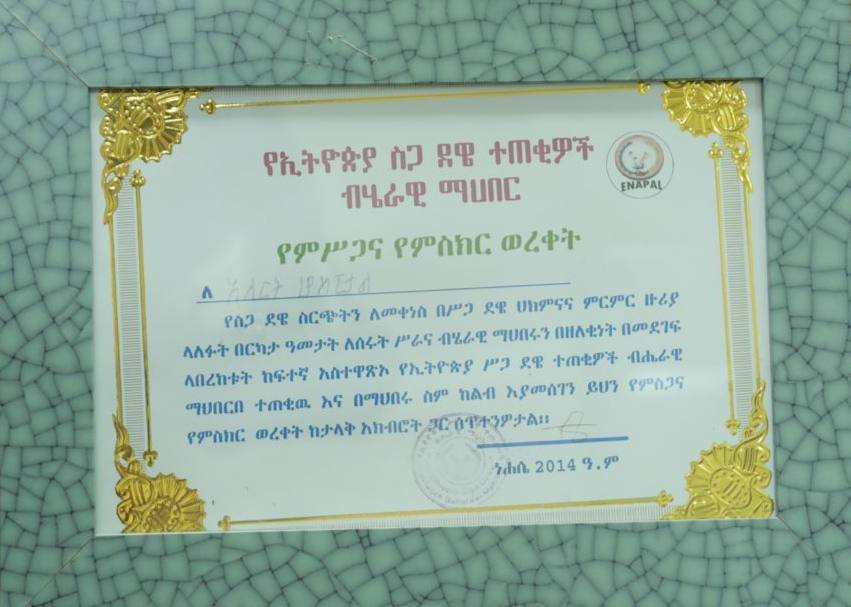 የኢትዮጵያ ስጋ ደዌ ተጠቂዎች
ብሄራዊ ማህበር
ENAPAL
የምሥጋና የምስክር ወረቀት
ለ አለርት ሆስፒታል
የስጋ ደዌ ስርጭትን ለመቀነስ በሥጋ ደዌ ህክምናና ምርምር ዙሪያ
ላለፉት በርካታ ዓመታት ለሰሩት ሥራና ብሄራዊ ማህበሩን በዘለቂነት በመደገፍ
ላበረከቱት ከፍተኛ አስተዋጽኦ የኢትዮጵያ ሥጋ ደዌ ተጠቂዎች ብሔራዊ
ማህበርበ ተጠቂዉ እና በማህበሩ ስም ከልብ እያመሰገን ይህን የምስጋና
የምስክር ወረቀት ከታላቅ አክብሮት ጋር ሰጥተንዎታል፡፡
ነሐሴ 2014 ዓ.ም